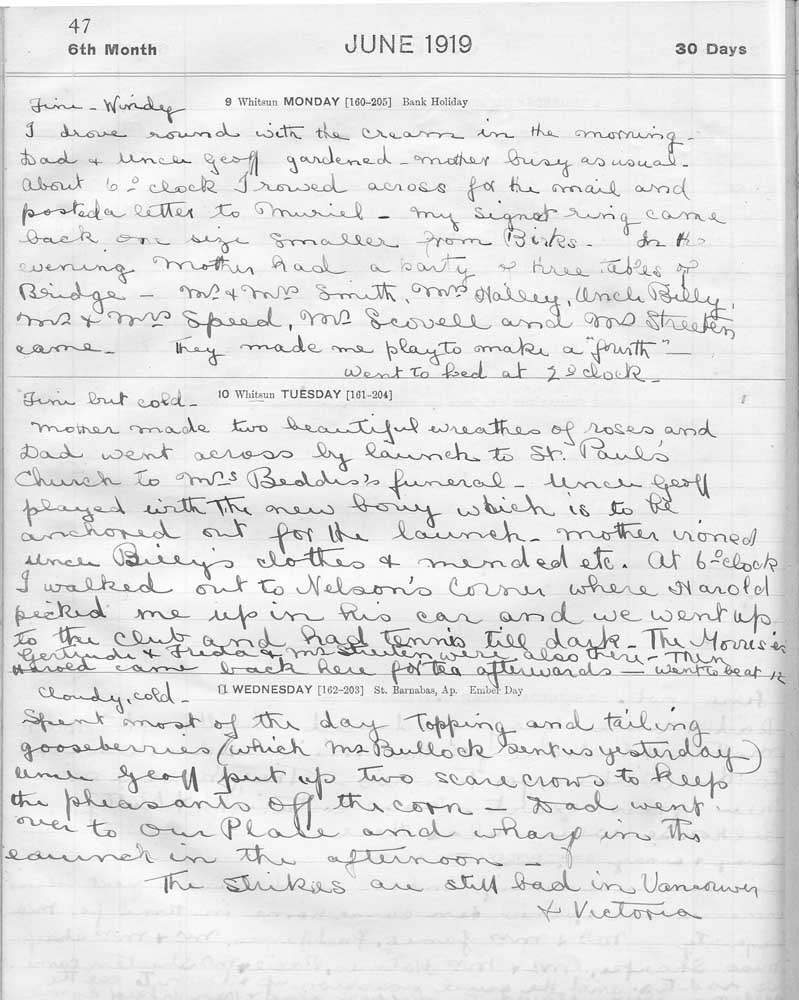 47
6th Month JUNE 1919 30 Days
Fine - Windy 9 Whitsun MONDAY [160-205] Bank Holiday
I drove round with the cream in the morning -
Dad & Uncle Geoff gardened - Mother busy as usual -
About 6 o'clock I rowed across for the mail and
posted a letter to Muriel - My signet ring came
back one size smaller from Birks - In the
evening Mother had a party of three tables of
Bridge - Mr & Mrs Smith, Mrs Halley, Uncle Billy,
Mr & Mrs Speed, Mrs Scovell and Mr Streeten
came - They made me play to make a "fourth" -
Went to bed at 2 o'clock -
Fine but cold - 10 Whitsun TUESDAY [161-204]
Mother made two beautiful wreathes of roses and
Dad went across by launch to St. Paul's
Church to Mrs Beddis's funeral - Uncle Geoff
played with the new bouy which is to be
anchored out for the launch - Mother ironed
Uncle Billy's clothes & mended etc. At 6 o'clock
I walked out to Nelson's Corner where Harold
picked me up in his car and we went up
to the Club and had tennis till dark - The Morris's
Gertrude & Freda & Mr Streeten were also there - Then
Harold came back here for tea afterwards - went to be at 12
Cloudy, cold - 11 WEDNESDAY [162-203] St. Barnabas, Ap. Ember Day
Spent most of the day Topping and tailing
gooseberries (which Mr Bullock sent us yesterday)
Uncle Geoff put up two scare crows to keep
the pheasants off the corn - Dad went
over to Our Place and wharf in the
launch in the afternoon -
The strikes are still bad in Vancouver
& Victoria